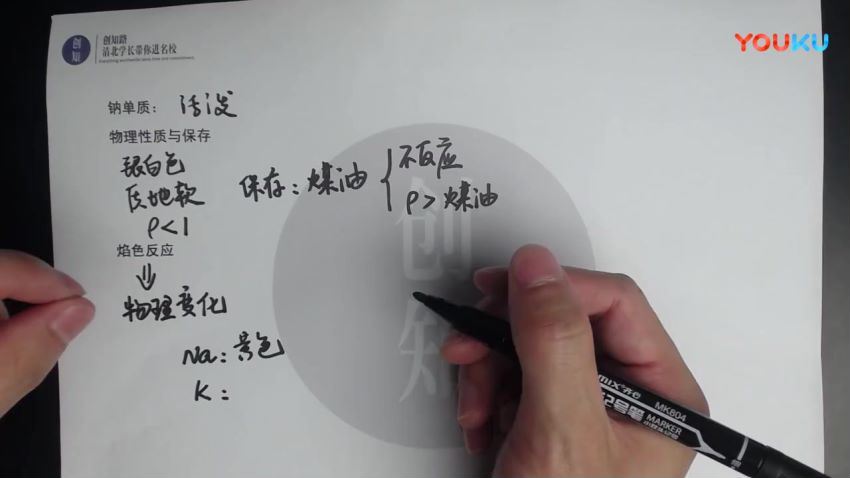 创知
创知路
清北学长带你进名校
YOUKU
钠单质：活泼
物理性质与保存
银白色
质地软
保存：煤油
不反应
ρ<1
ρ>煤油
焰色反应
⇓
物理变化
Na：黄色
K：
创知
齐心
MK804
记号笔
MARKER